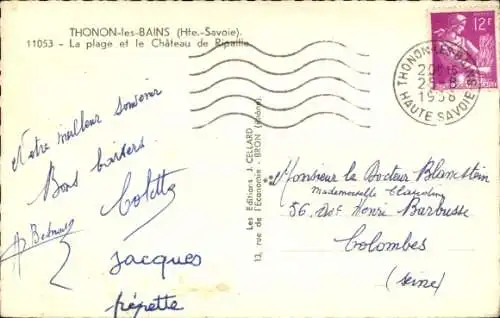 THONON-les-BAINS (Hte-Savoie).
11053 - La plage et le Château de Ripaille
12F
THONON-LES-BAINS
1958
HAUTE SAVOIE
Notre meilleur souvenir
Bons baisers
Colette
Jacques
pépette
Les Editions J. CELLARD
13, rue de l'Economie - BRON (Rhône)
Monsieur le Docteur Blamstein
Mademoiselle
56. Henri Barbusse
Colombes
(Seine)